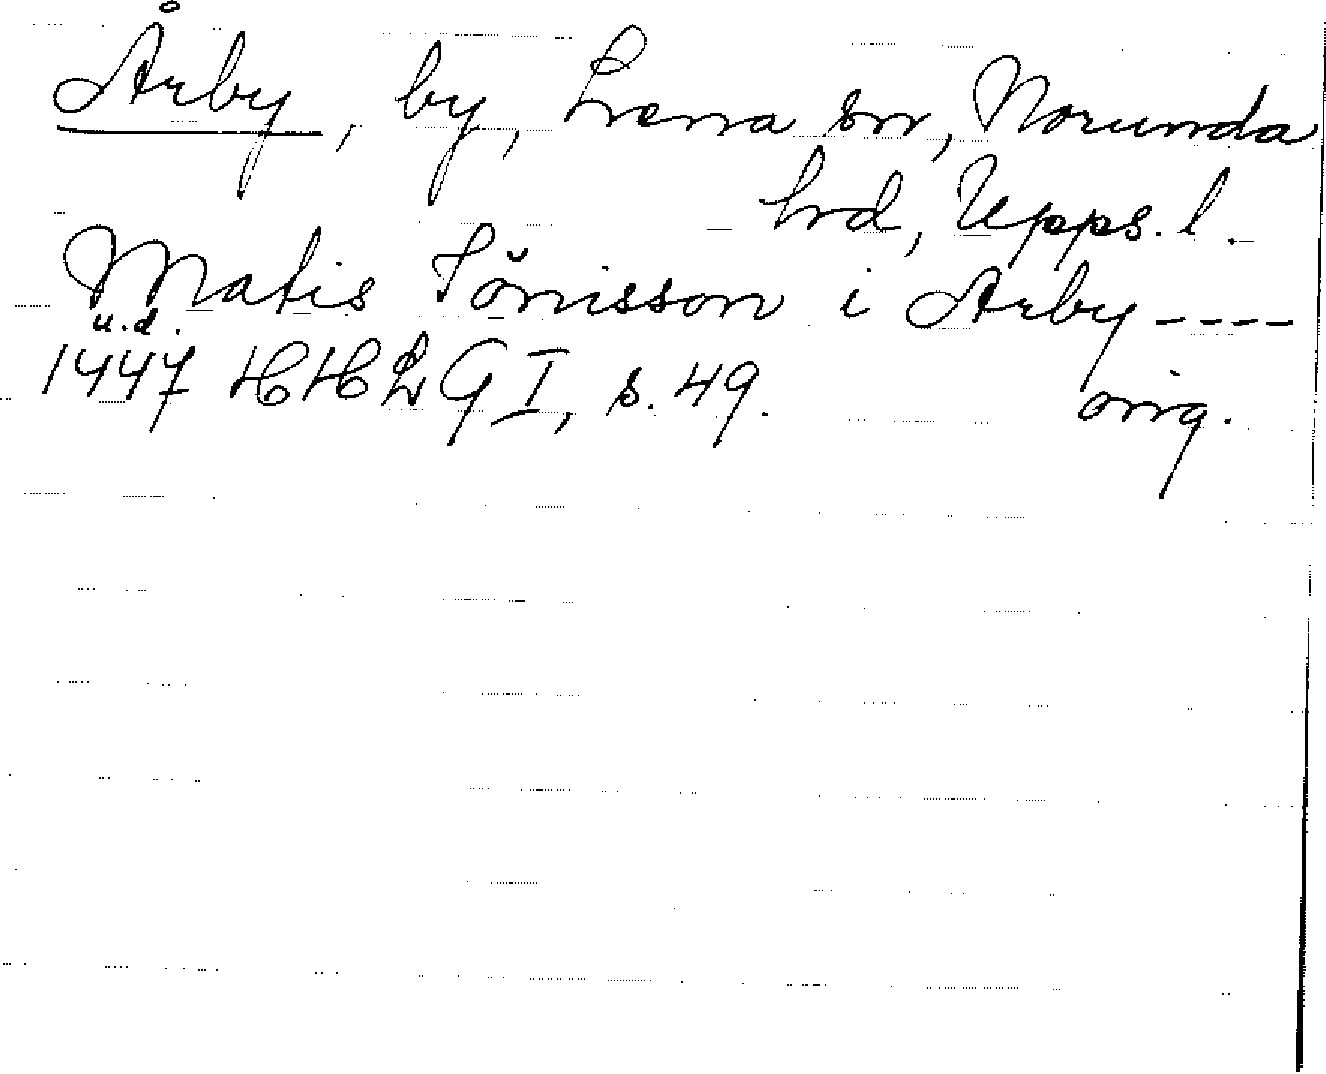 Årby, by, Lena sn, Norunda
hd, Upps. l.
Matis Jönisson i Arby ----
u.d.
1447 HHLG I, s. 49. orig.